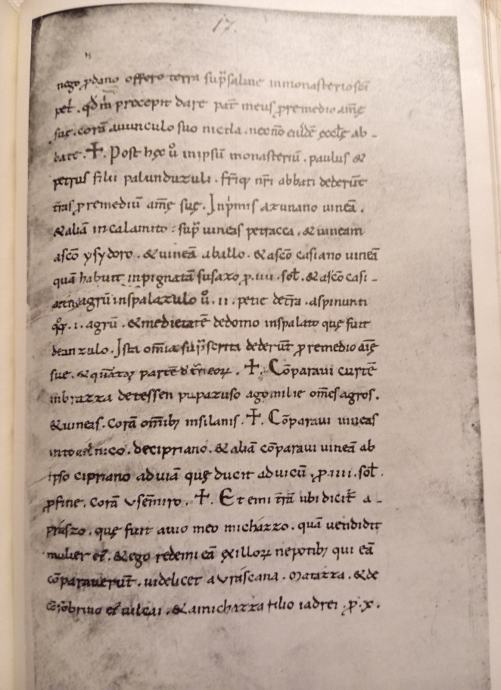 17.
offero terra sup saline in monasterio sci
pet. qd m precepit dare pat meus, p remedio
sue. cora avunculo suo nicla. ecclę ab
bate. ☩. Post hęc u in ipsu monasteriu. paulus &
petrus filii palunduzuli. nri abbati dederut
tras p remediu anię sue. In primis azunano vinea.
& alia in calamito: sup vineas petracca. & vineam
asco ysydoro. & vinea aballo. & asco casiano vinea
qua habuit in pignata susaxo p. iiii. sol. & asco casi-
agru in spalazulo u. ii. petie de tra. aspinunti
i. agru. & medietate de domo in spalato que fuit
dean zulo. Ista omia sup scrita dederut p remedio anię
sue. & parte ☩. Coparavi curte
in brazza de tessen puparuso agomilie omes agros.
& vineas. cora omib insilanis. ☩. Coparavi vineas
de cipriano. & alia coparavi vinea ab
ipso cipriano ad via quę ducit ad vicu. p. iiii. sol.
p fine. cora Vsemiro. ☩. Et emi tra ubi dicit a-
pruszo. quę fuit avio meo michazzo. qua vendidit
mulier ei. & ego redemi ea ex illorum nepotib qui ea
coparaverut. videlicet a Vrascana. Matazza. & de
& a michazza filio iadrei. p. x.